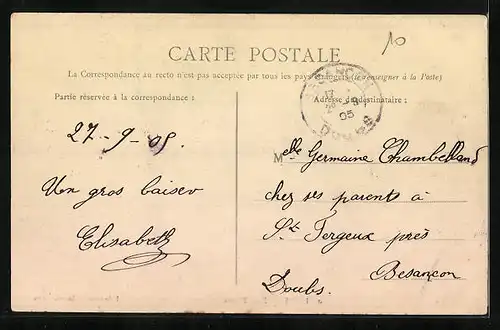 10
CARTE POSTALE
La Correspondance au recto n'est pas acceptée par tous les pays étrangers (se renseigner à la Poste)
Partie réservée à la correspondance :
Adresse du destinataire :
BESANCON
05
DOUBS
27-9-05.
Un gros baiser
Elisabeth
Melle Germaine Chambelland
chez ses parents à
St Fergeux près
Besançon
Doubs.